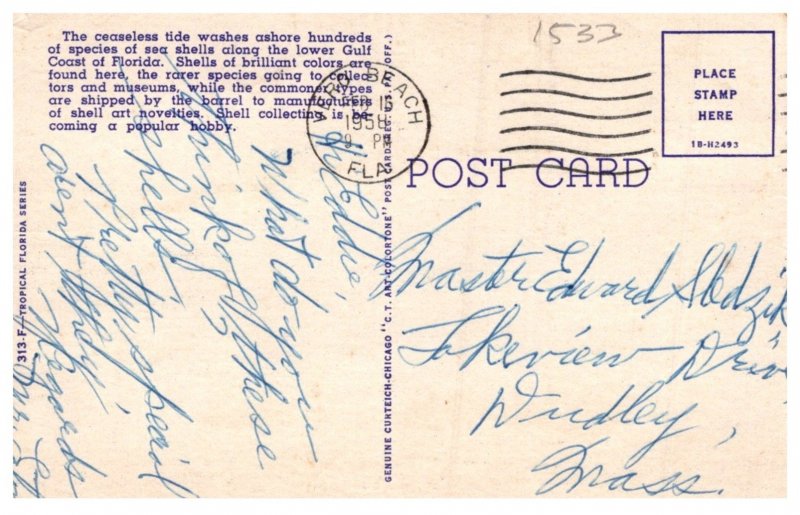 The ceaseless tide washes ashore hundreds
of species of sea shells along the lower Gulf
Coast of Florida. Shells of brilliant colors are
found here, the rarer species going to collec-
tors and museums, while the commoner types
are shipped by the barrel to manufacturers
of shell art novelties. Shell collecting is be-
coming a popular hobby.
1533
VERO BEACH
FEB 16
1958
9 PM
FLA
PLACE
STAMP
HERE
1B-H2493
POST CARD
313-F—TROPICAL FLORIDA SERIES
GENUINE CURTEICH-CHICAGO "C.T. ART-COLORTONE" POST CARD (REG. U.S. PAT. OFF.)
Hi Eddie,
What do you
think of these
shells.
Pretty
arent they.
Regards
Master Edward
Lakeview Drive
Dudley,
Mass.